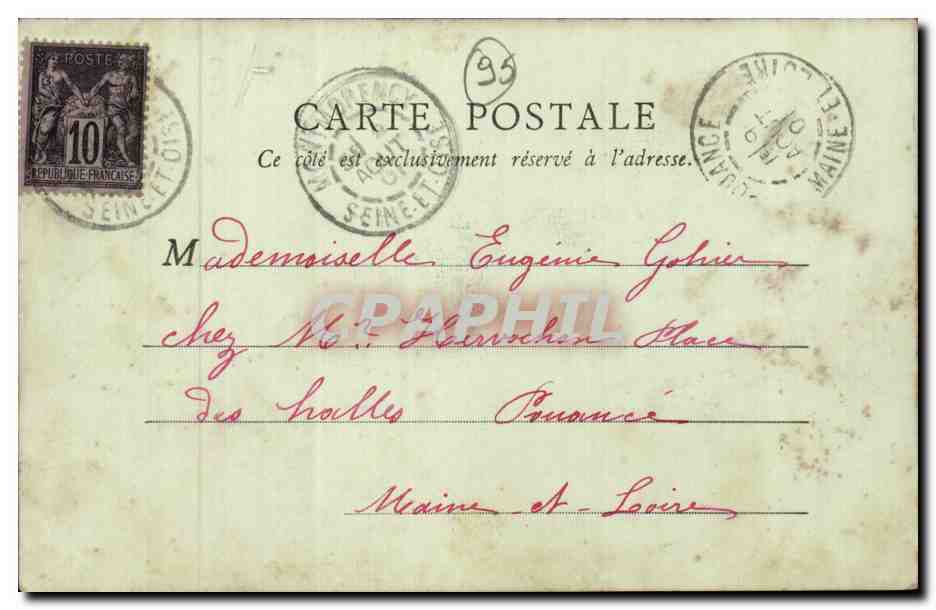 POSTE
10
REPUBLIQUE FRANÇAISE
SEINE-ET-OISE
MONTMORENCY
AOUT
01
SEINE-ET-OISE
95
POUANCÉ
MAINE-ET-LOIRE
CARTE POSTALE
Ce côté est exclusivement réservé à l'adresse.
Mademoiselle Eugénie Gohier
chez Mr. Hervochon Place
des halles Pouancé
Maine-et-Loire
CPAPHIL